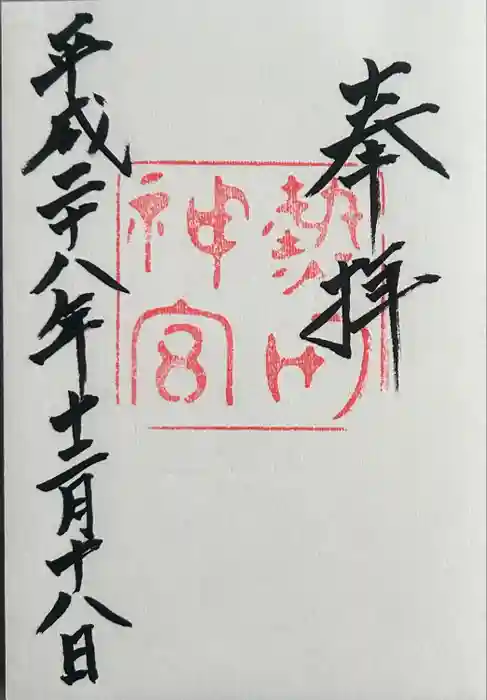 奉拝
熱田
神宮
平成二十八年十二月十八日